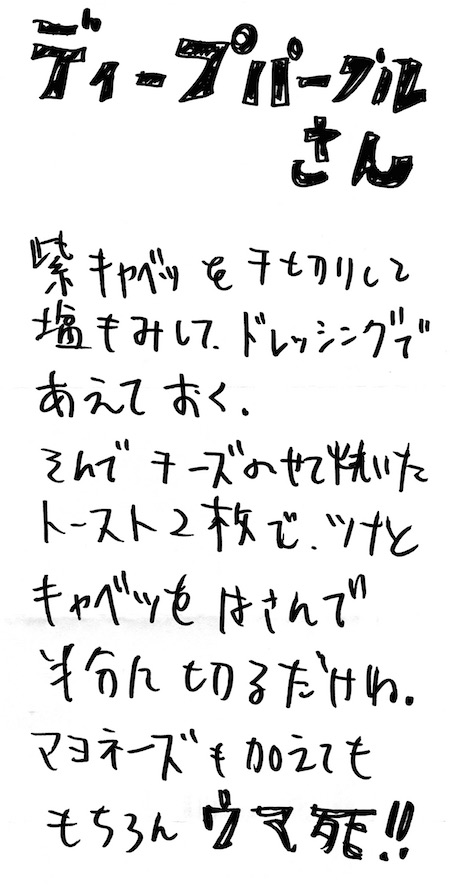 ディープパープル
さん
紫キャベツを千切りして
塩もみして、ドレッシングで
あえておく。
そんでチーズのせて焼いた
トースト2枚で、ツナと
キャベツをはさんで
半分に切るだけね。
マヨネーズも加えても
もちろんウマ死!!